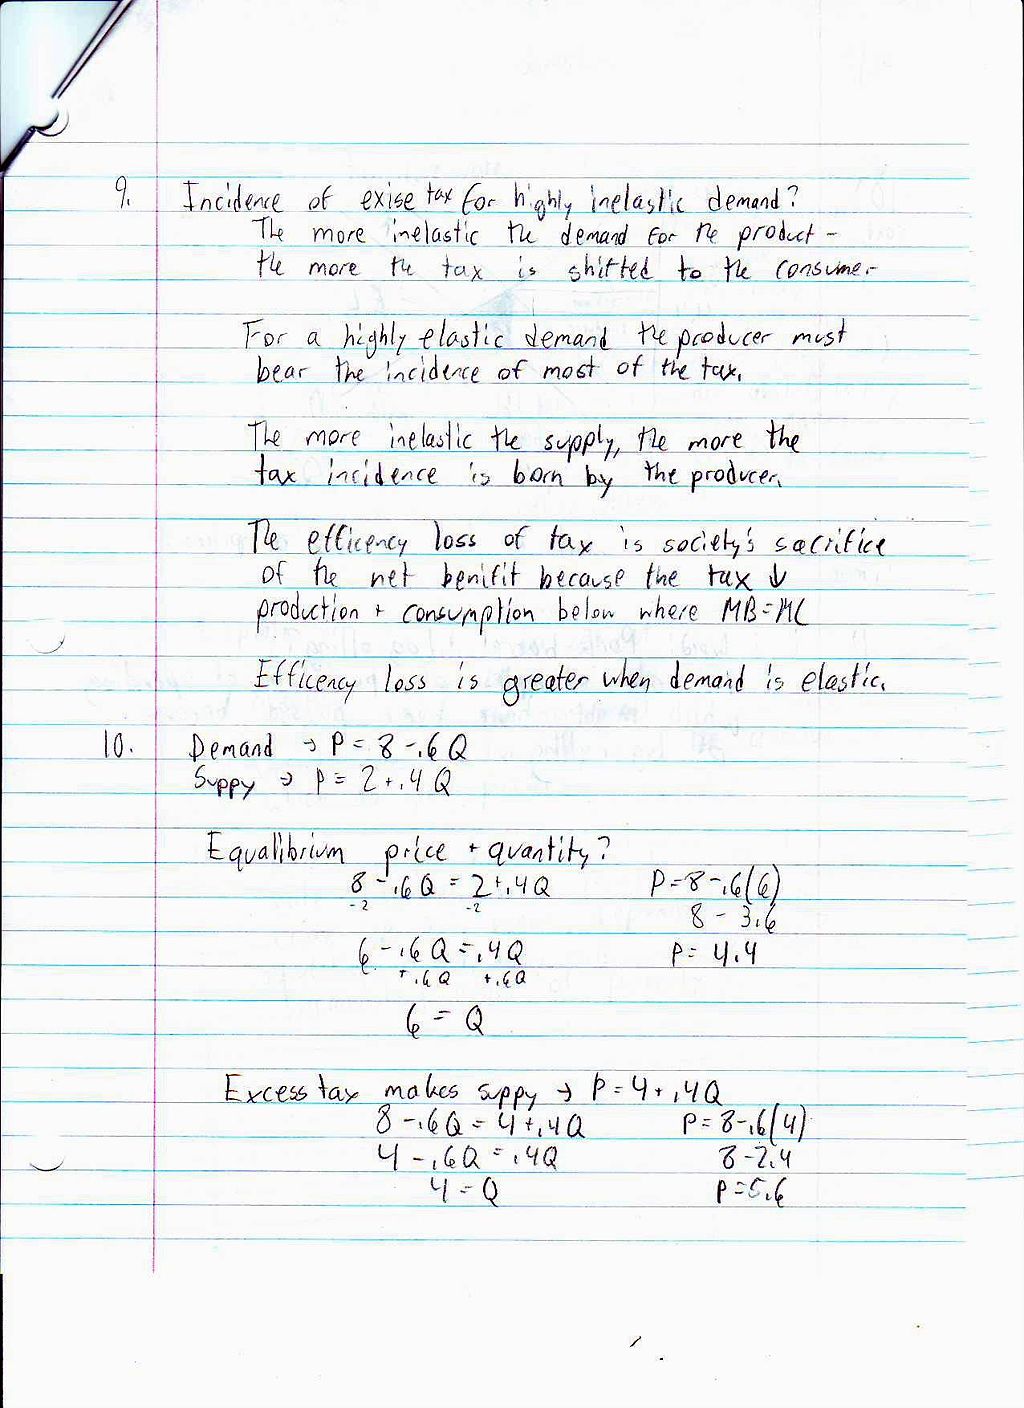 9. Incidence of exise tax for highly inelastic demand?
The more inelastic the demand for the product -
the more the tax is shifted to the consumer
For a highly elastic demand the producer must
bear the incidence of most of the tax.
The more inelastic the supply, the more the
tax incidence is born by the producer.
The efficency loss of tax is society's sacrifice
of the net benifit because the tax ↓
production + consumption below where MB=MC
Efficency loss is greater when demand is elastic.
10. Demand → P = 8 - .6Q
Suppy → P = 2 + .4Q
Equalibrium price + quantity?
8 - .6Q = 2 + .4Q P = 8 - .6(6)
-2 -2 8 - 3.6
6 - .6Q = .4Q P = 4.4
+.6Q +.6Q
6 = Q
Excess tax makes suppy → P = 4 + .4Q
8 - .6Q = 4 + .4Q P = 8 - .6(4)
4 - .6Q = .4Q 8 - 2.4
4 = Q P = 5.6